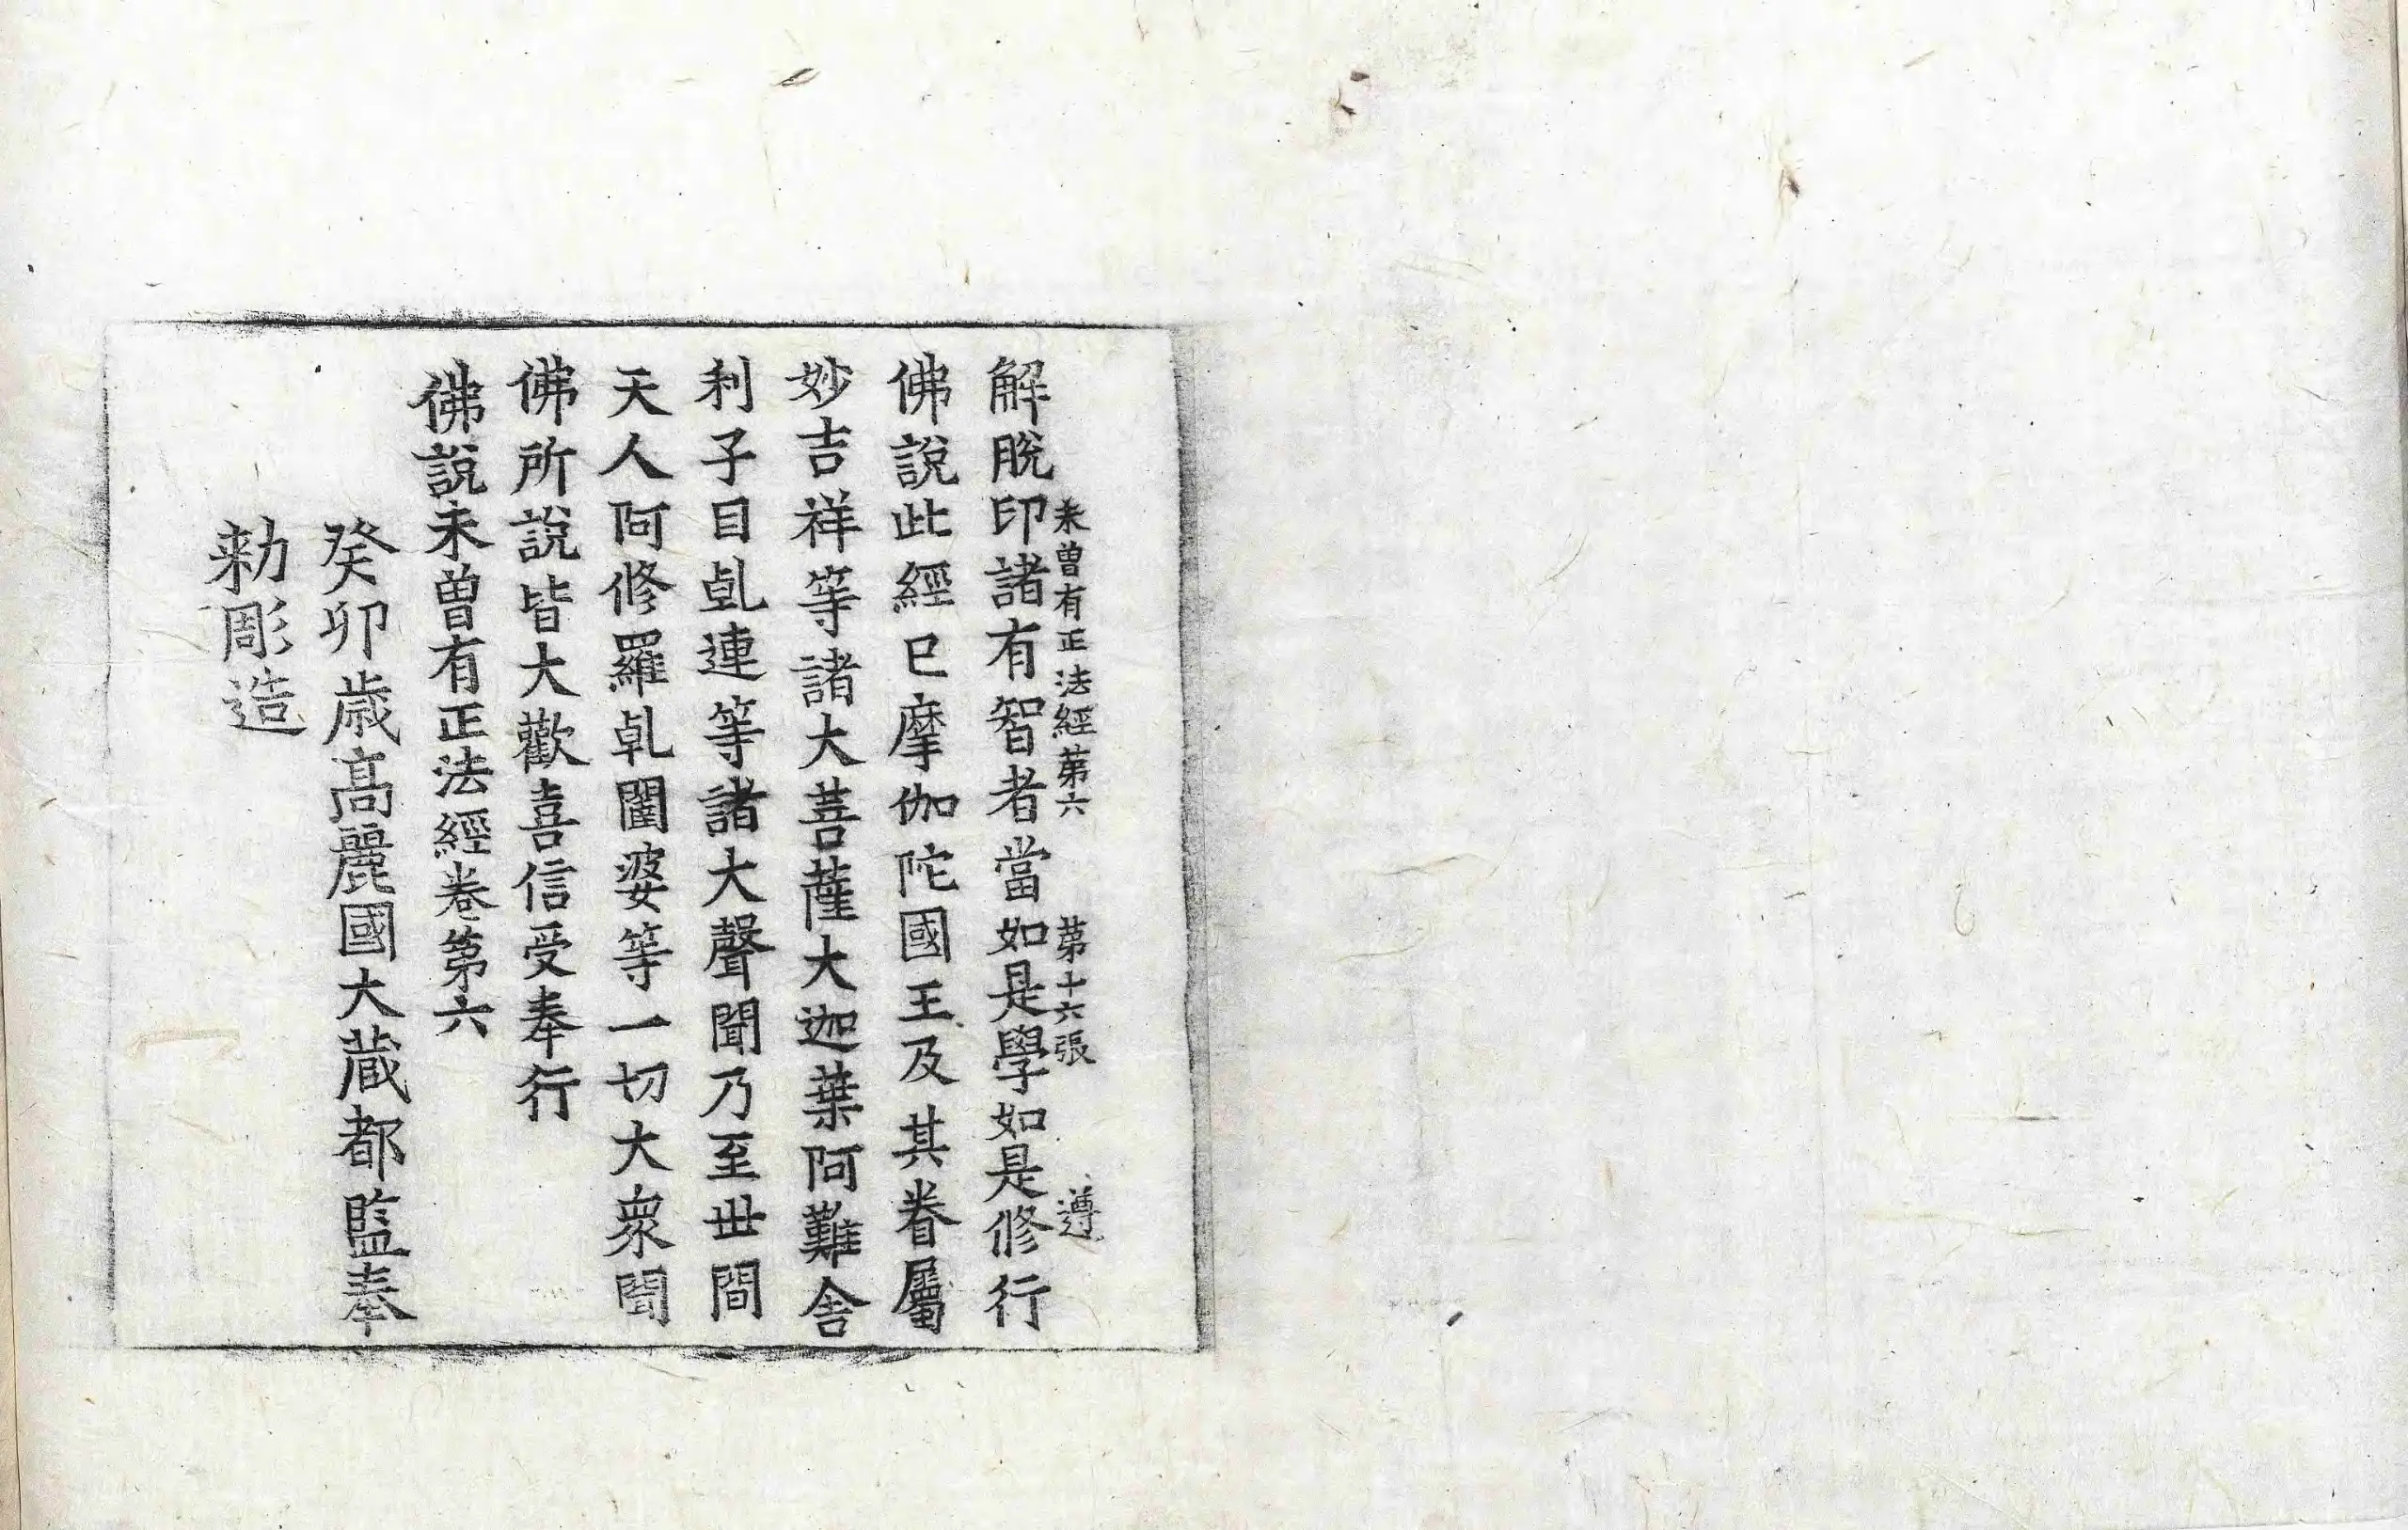 未曾有正法經第六 第十六張 遵
解脫印諸有智者當如是學如是修行
佛說此經已摩伽陀國王及其眷屬
妙吉祥等諸大菩薩大迦葉阿難舍
利子目乹連等諸大聲聞乃至世間
天人阿修羅乹闥婆等一切大衆聞
佛所說皆大歡喜信受奉行
佛說未曾有正法經卷第六
癸卯歲高麗國大藏都監奉
勑彫造